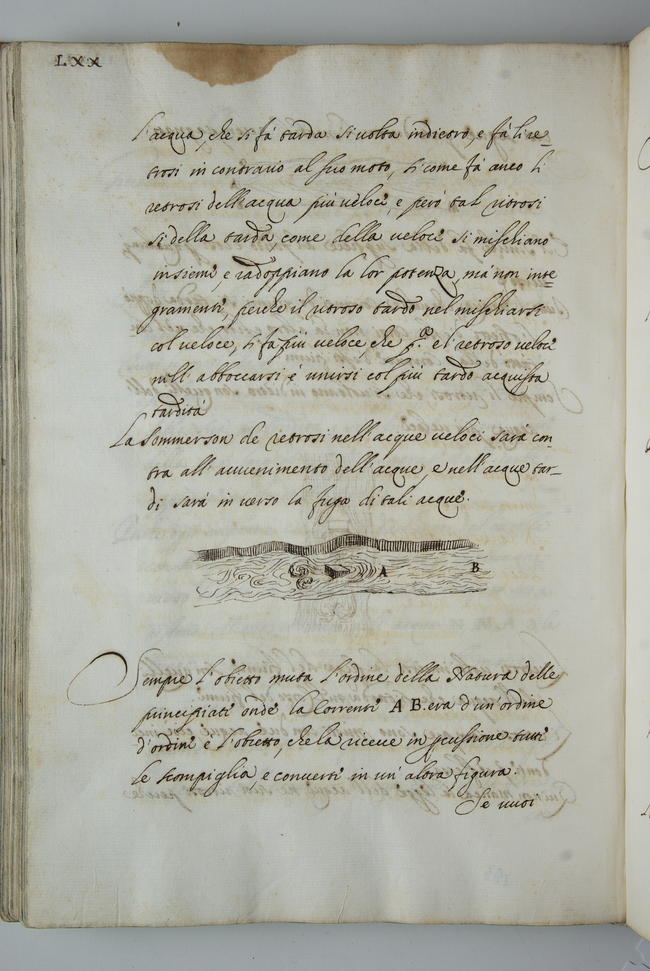 LXX
l'acqua, che si fà tarda si volta indietro, e fà li re-
trosi in contrario al suo moto, si come fà anco li
retrosi dell'acqua più veloce, e però tal ritrosi
si della tarda come della veloce si mischiano
insieme, e radoppiano la lor potenza, mà non inte-
gramente, perche il ritroso tardo nel mischiarsi
col veloce, si fà più veloce, che p.ª e 'l retroso veloce
nell'abboccarsi e unirsi col più tardo acquista
tardità
La sommerson de retrosi nell'acque veloci sarà con-
tra all'avvenimento dell'acque, e nell'acque tar-
di sarà in verso la fuga di tali acque.
A B
Sempre l'obietto muta l'ordine della Natura delle
principiate onde la Corrente A B. era d'un'ordine
d'ordine e l'obietto, che la riceve in pcussione tutte
le scompiglia e converte in un'altra figura.
Se vuoi